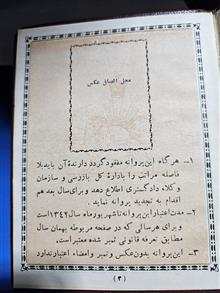 محل الصاق عکس
۱ــ هرگاه این پروانه مفقود گردد دارندهٔ آن باید بلا
فاصله مراتب را باداره کل بازرسی و سازمان
وکلاء دادگستری اطلاع دهد وبرای سال بعد هم
اقدام به تجدید پروانه نماید .
۲ــ مدت اعتبار این پروانه تا شهریورماه سال ۱۳۴۲ است
و برای هر سالی که در صفحه مربوطه بهمان سال
مطابق تعرفه قانونی تمبر شده معتبر است.
۳ــ این پروانه بدون عکس و تمبر و امضاء اعتبار ندارد
(۳)